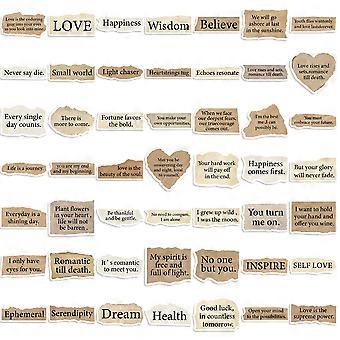 Love is the enduring
gaze into your eyes
as you look into mine
LOVE
Happiness
Wisdom
Believe
We will go
ashore at last
in the sunshine.
Youth dies wantonly
and love lasts forever
Never say die.
Small world
Light chaser
Heartstrings tug
Echoes resonate
Love rises and sets,
romance till death.
Love rises and
sets, romance
till death.
Every single
day counts.
There is
more to come.
Fortune favors
the bold.
You make your
own opportunities.
When we face
our deepest fears,
our true courage
comes out.
I'm the best
me I can
possibly be.
You must
embrace your future.
Life is a journey.
you are my end
and my beginning.
love is the
beauty of the soul.
May you be
unwavering day
and night, loyal to
yourself.
Your hard work
will pay off
in the end.
Happiness
comes first.
But your glory
will never fade.
Everyday is a
shining day.
Plant flowers
in your heart,
life will not
be barren.
Be thankful
and be gentle.
No need to compare,
I am alone
I grew up wild,
i was the moon.
You turn
me on.
I want to
hold your
hand and
offer you wine.
I only have
eyes for you.
Romantic
till death.
It's romantic
to meet you.
My spirit is
free and
full of light.
No one
but you.
INSPIRE
SELF LOVE
Ephemeral
Serendipity
Dream
Health
Good luck,
in countless
tomorrow.
Open your mind
to the possibilities.
Love is the
supreme power.